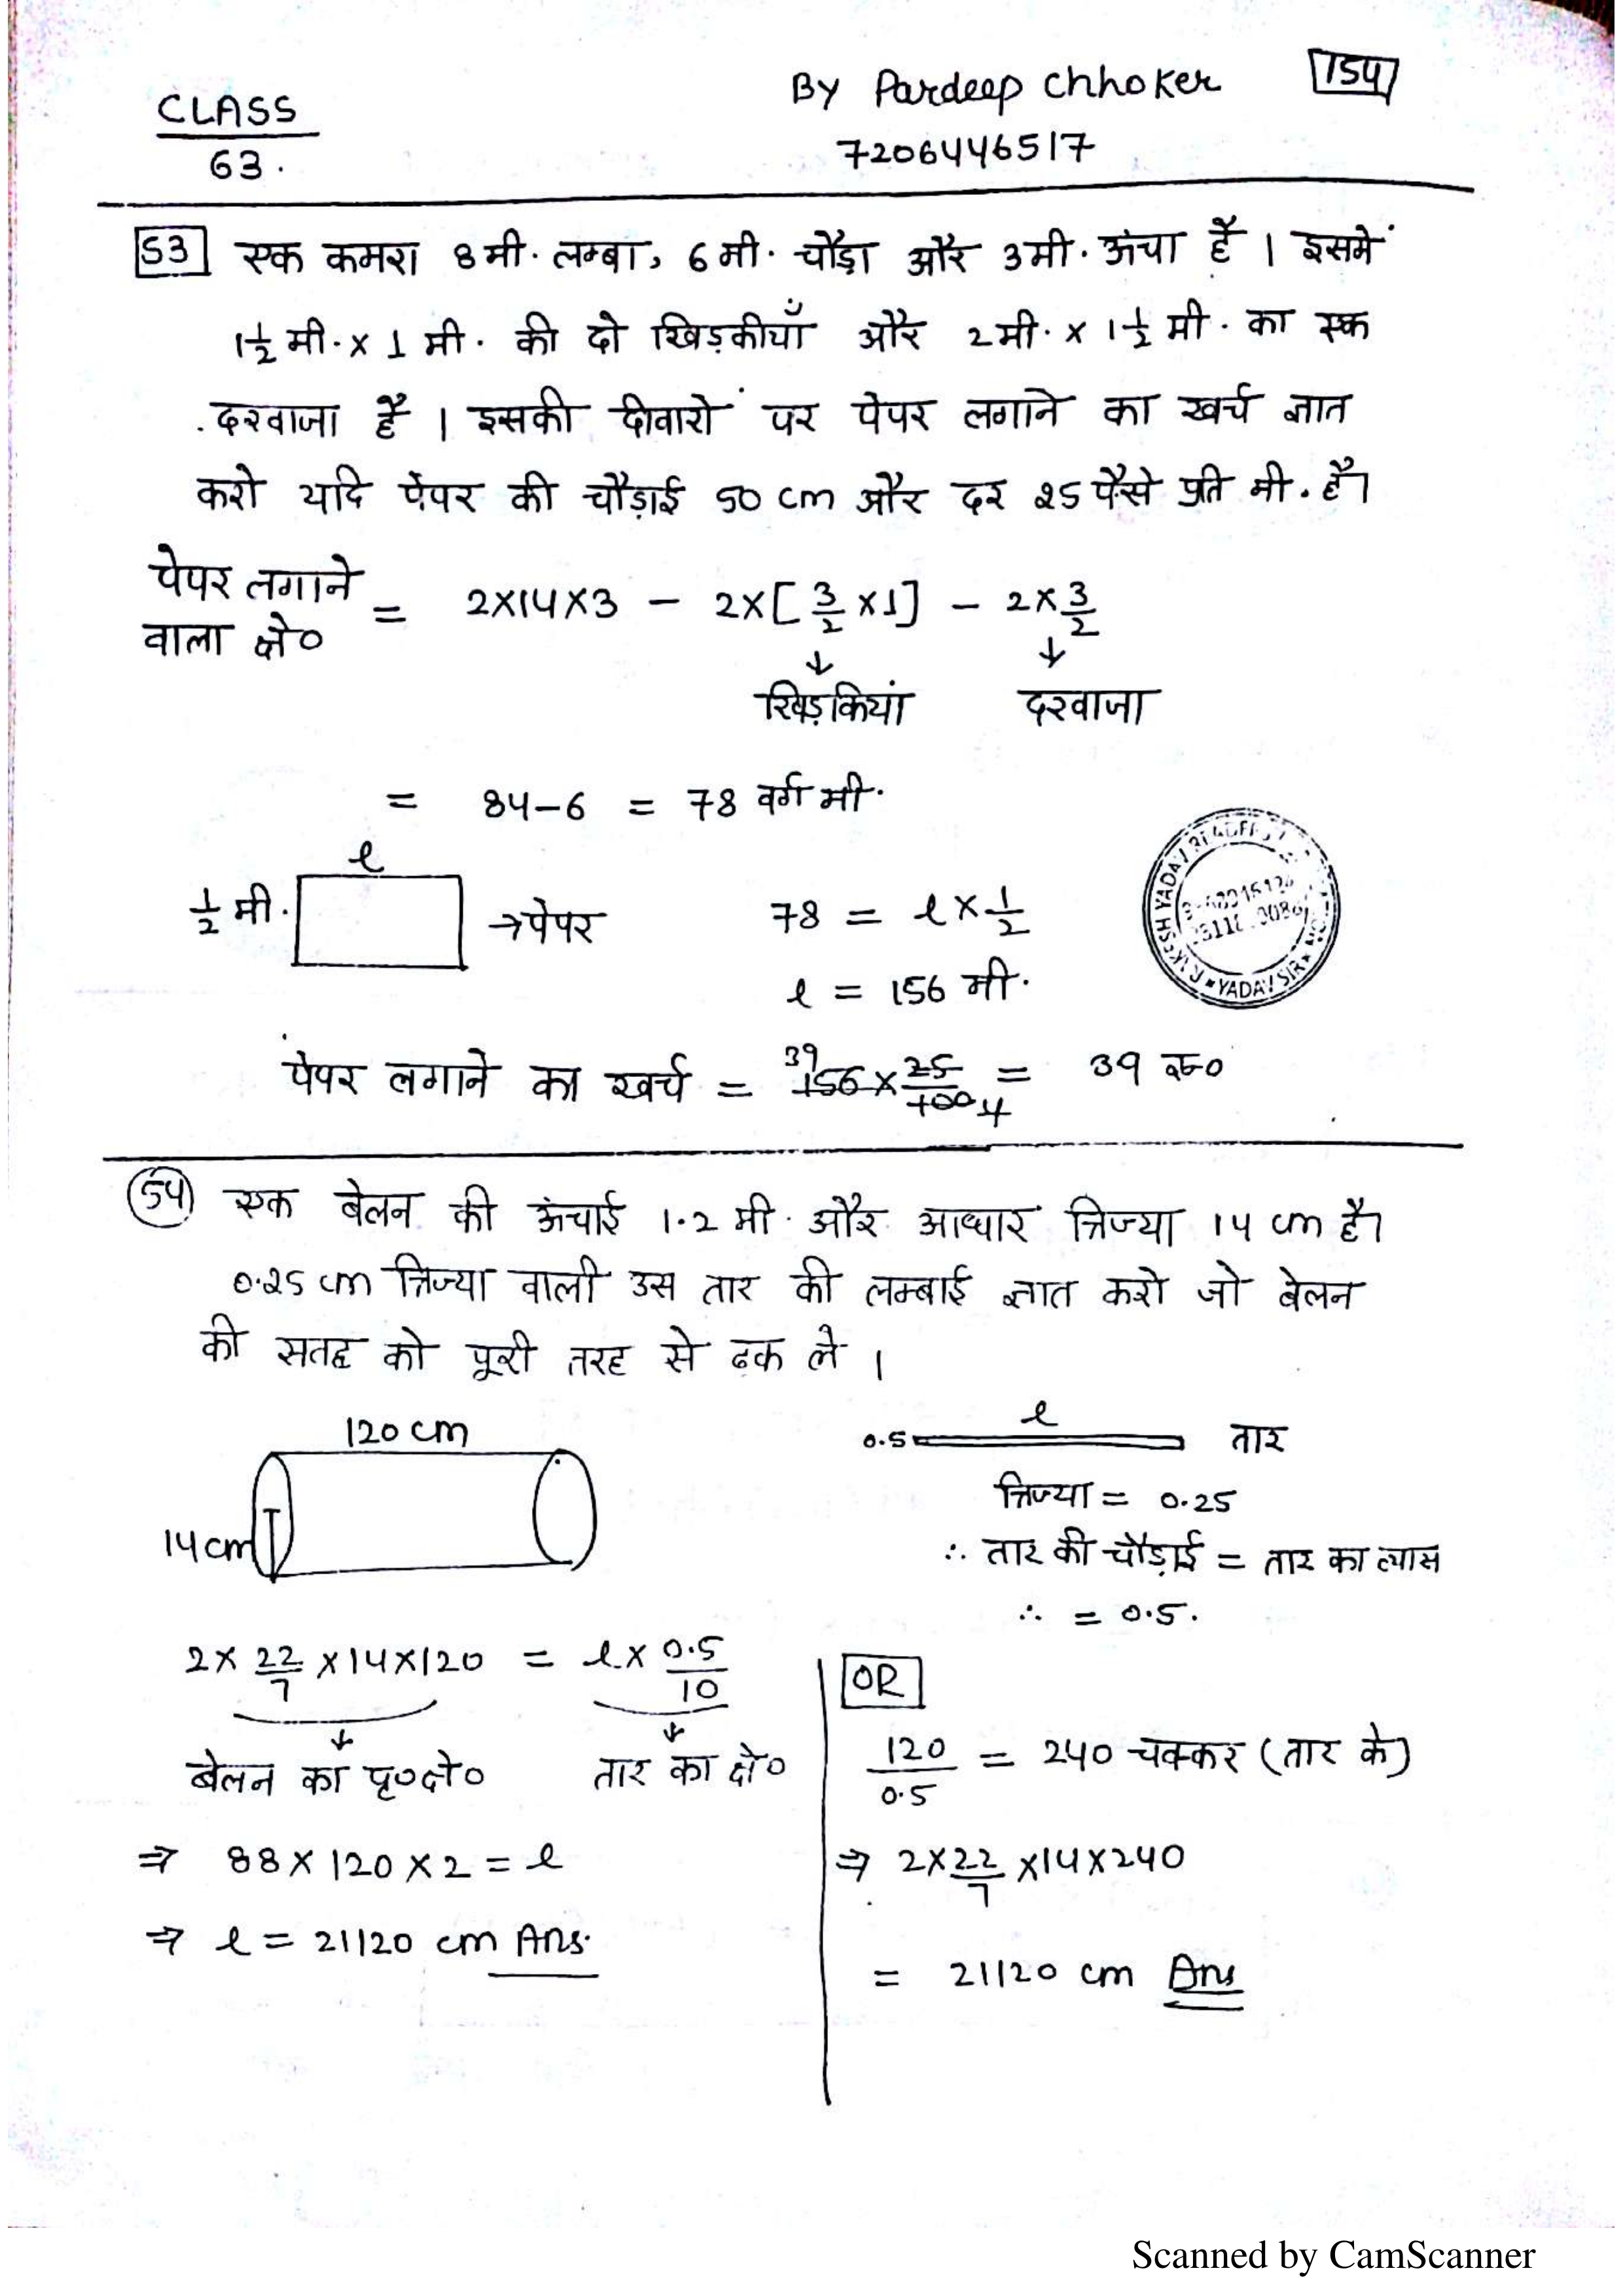 CLASS
63.
By Pardeep Chhoker 154
7206446517
53 एक कमरा 8 मी. लम्बा, 6 मी. चौड़ा और 3 मी. ऊंचा है । इसमें
1½ मी. x 1 मी. की दो खिड़कीयाँ और 2 मी. x 1½ मी. का एक
दरवाजा है । इसकी दीवारों पर पेपर लगाने का खर्च ज्ञात
करो यदि पेपर की चौड़ाई 50 cm और दर 25 पैसे प्रति मी. है।
पेपर लगाने वाला क्षे० = 2x14x3 - 2x[3/2 x1] - 2x3/2
↓ ↓
खिड़कियां दरवाजा
= 84-6 = 78 वर्ग मी.
l
½ मी. →पेपर 78 = l x 1/2
l = 156 मी.
पेपर लगाने का खर्च = 39 156 x 25/100 4 = 39 रु०
54 एक बेलन की ऊंचाई 1.2 मी. और आधार त्रिज्या 14 cm है।
0.25 cm त्रिज्या वाली उस तार की लम्बाई ज्ञात करो जो बेलन
की सतह को पूरी तरह से ढक ले ।
120 cm
14 cm
l
0.5 तार
त्रिज्या = 0.25
∴ तार की चौड़ाई = तार का व्यास
∴ = 0.5.
2 x 22/7 x14x120 = l x 0.5/10
↓ ↓
बेलन का पृ०क्षे० तार का क्षे०
⇒ 88 x 120 x 2 = l
⇒ l = 21120 cm Ans.
OR
120/0.5 = 240 चक्कर (तार के)
⇒ 2x22/7 x14x240
= 21120 cm Ans
RAKESH YADAV
YADAV SIR
Scanned by CamScanner